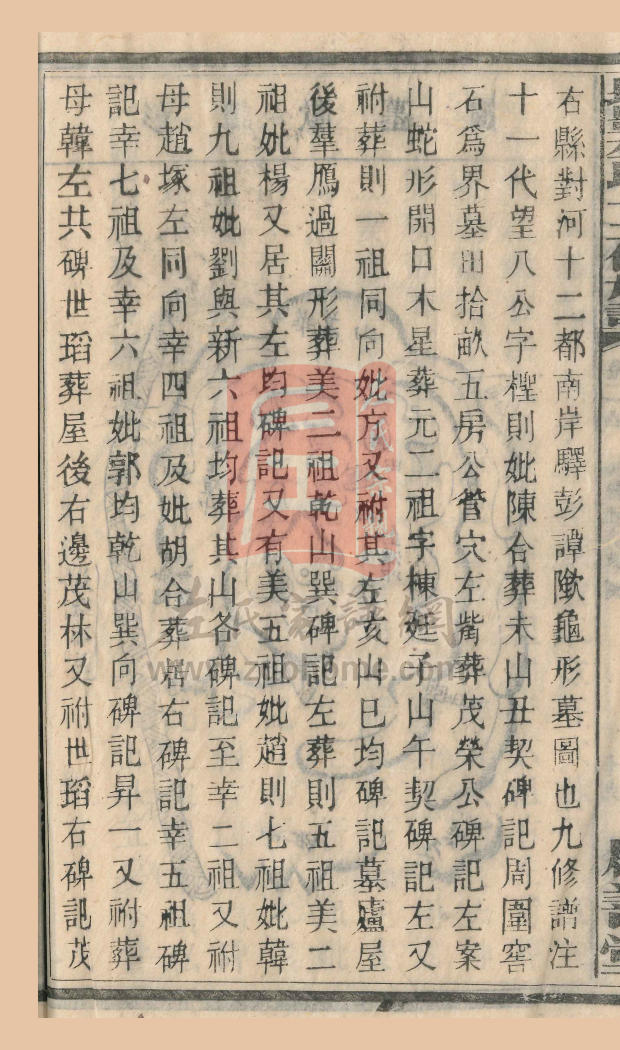 右縣對河十二都南岸驛彭譚陂龜形墓圖也九修譜注
十一代望八公字樫則妣陳合葬未山丑契碑記周圍窖
石爲界墓田拾畝五房公管穴左觜葬茂榮公碑記左案
山蛇形開口木星葬元二祖字棟妊子山午契碑記左又
祔葬則一祖同向妣方又祔其左亥山巳均碑記墓廬屋
後羣鴈過關形葬美二祖乾山巽碑記左葬則五祖美二
祖妣楊又居其左均碑記又有美五祖妣趙則七祖妣韓
則九祖妣劉與新六祖均葬其山各碑記至幸二祖又祔
母趙塚左同向幸四祖及妣胡合葬居右碑記幸五祖碑
記幸七祖及幸六祖妣郭均乾山巽向碑記昇一又祔葬
母韓左共碑世瑫葬屋後右邊茂林又祔世瑫右碑記茂
左氏家譜網